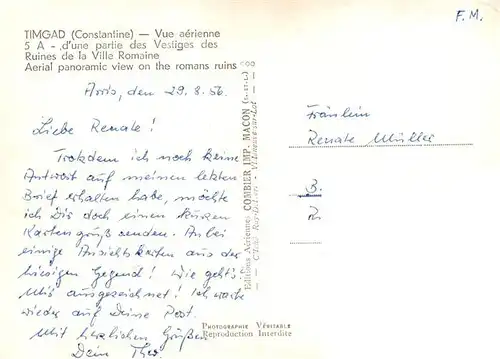 TIMGAD (Constantine) — Vue aérienne
5 A - d'une partie des Vestiges des
Ruines de la Ville Romaine
Aerial panoramic view on the romans ruins
F. M.
Arris, den 29. 8. 56.
Liebe Renate!
Trotzdem ich noch keine
Antwort auf meinen letzten
Brief erhalten habe, möchte
ich Dir doch einen kurzen
Kartengruß senden. Anbei
einige Ansichtskarten aus der
hiesigen Gegend! Wie geht's
Mir ausgezeichnet! Ich warte
wieder auf Deine Post.
Mit herzlichen Grüßen
Dein
Editions Aériennes COMBIER IMP. MACON (S.-et-L.)
PHOTOGRAPHIE VÉRITABLE
Reproduction Interdite
Fräulein
Renate Müller